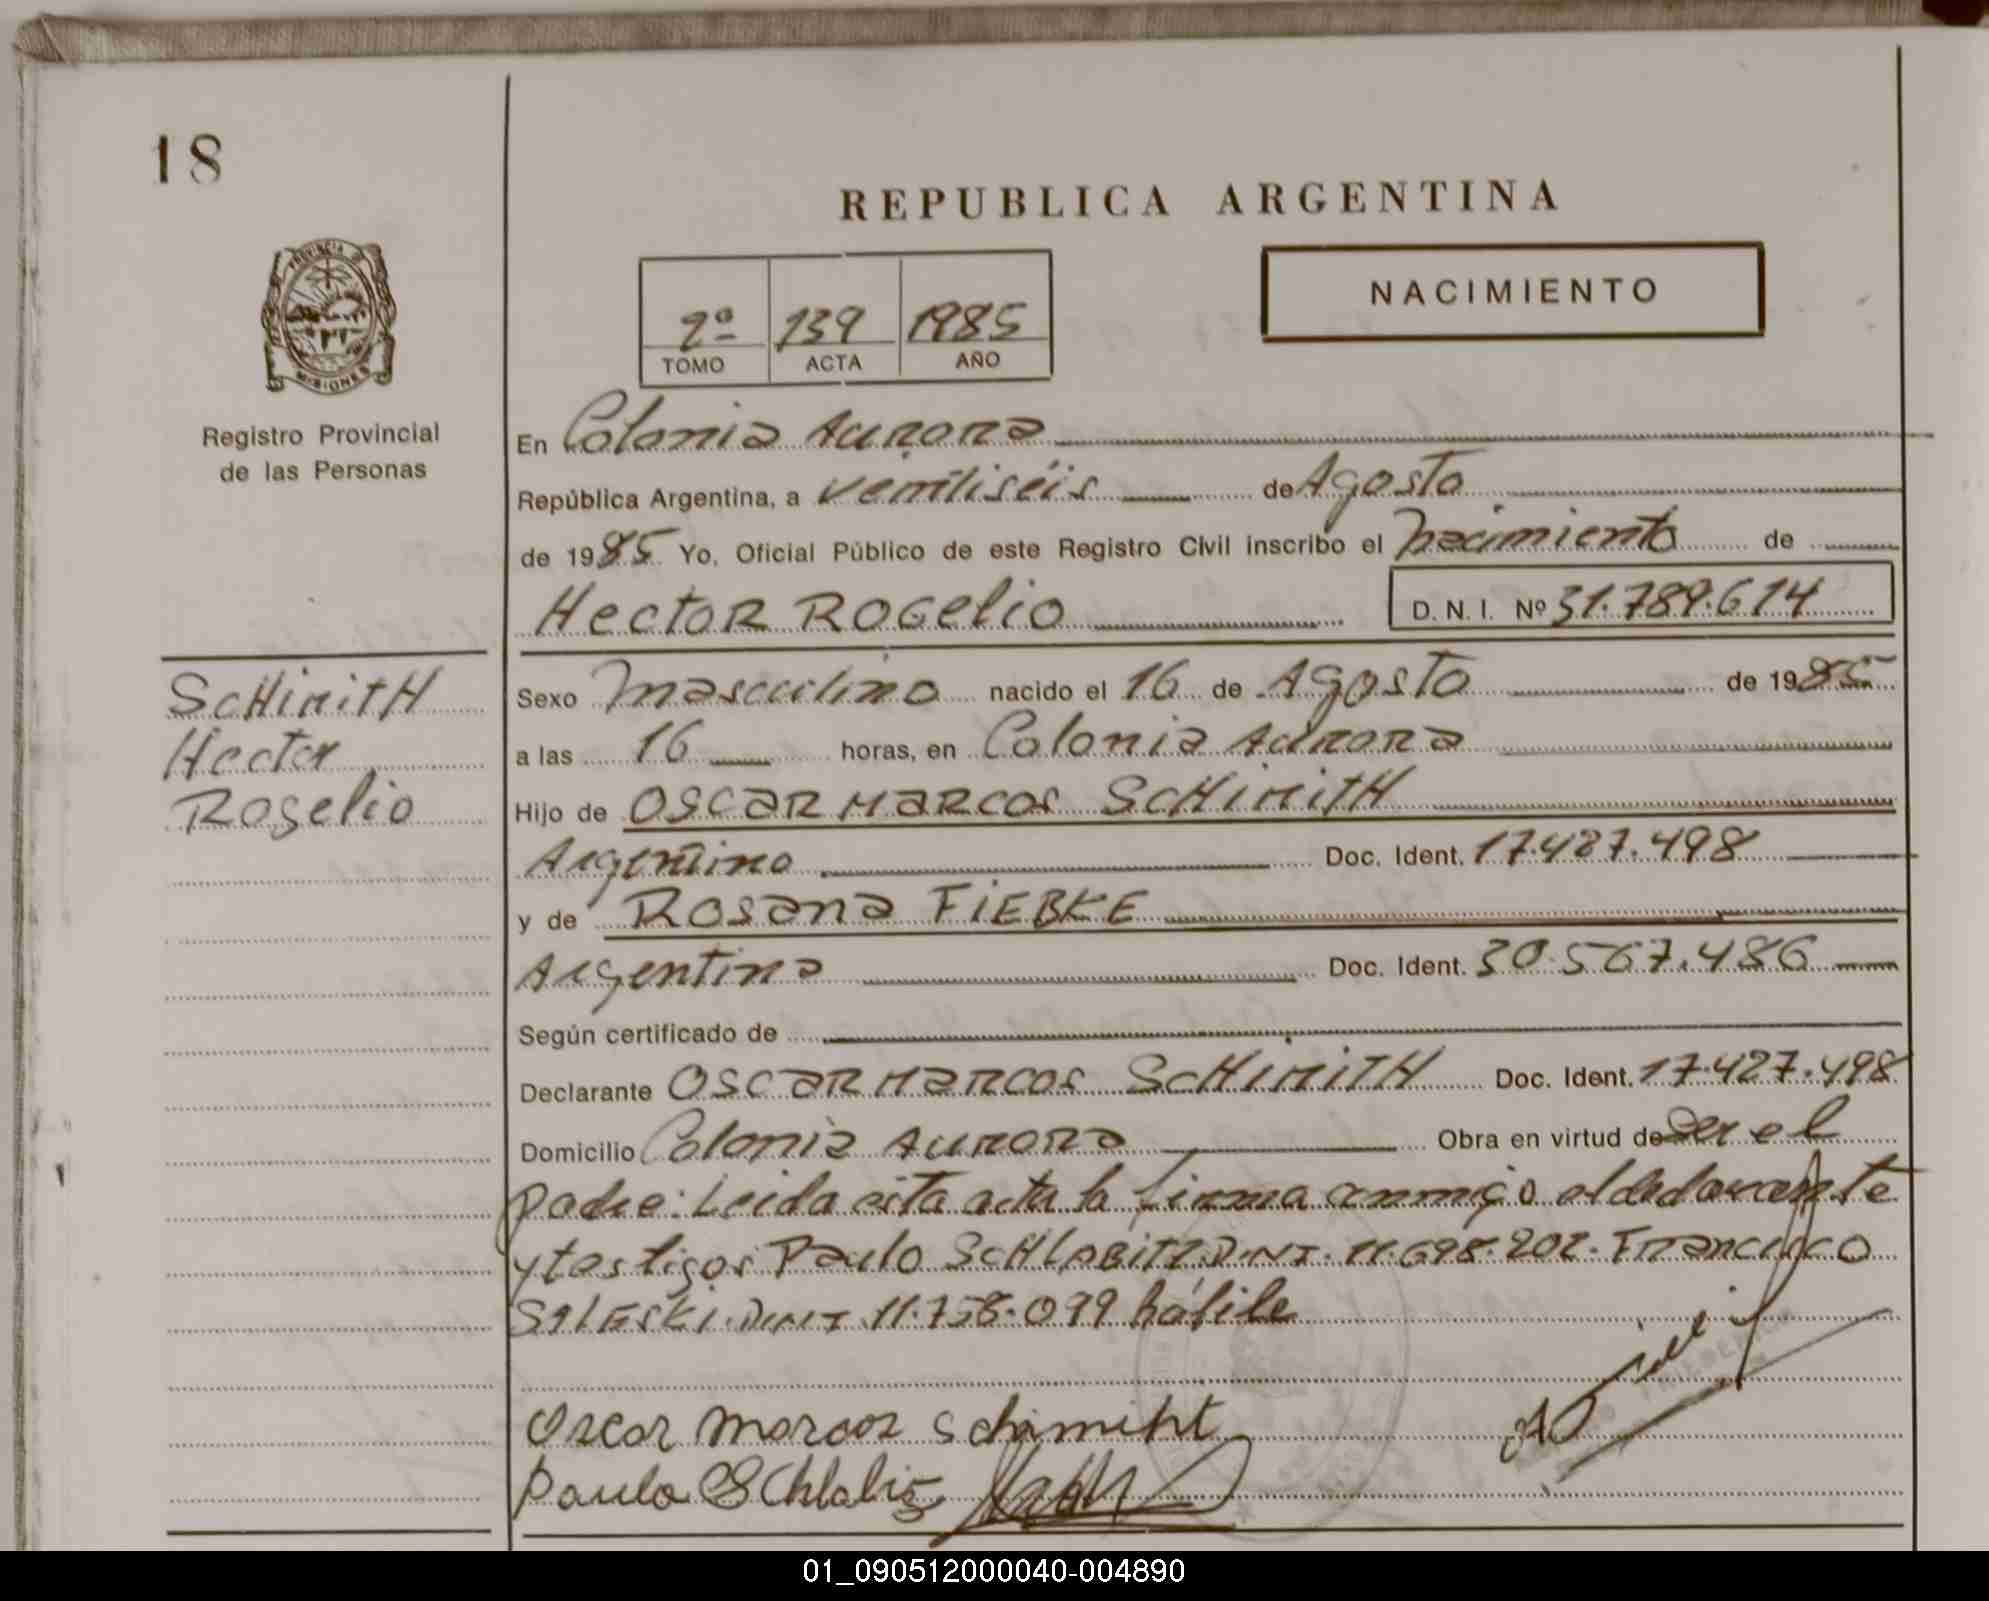 18
REPUBLICA ARGENTINA
NACIMIENTO
2º 139 1985
TOMO ACTA AÑO
PROVINCIA DE
MISIONES
Registro Provincial
de las Personas
En Colonia Aurora
República Argentina, a veintiséis de Agosto
de 1985 Yo, Oficial Público de este Registro Civil inscribo el nacimiento de
Hector Rogelio D.N.I. Nº 31.789.614
SCHIMITH
Hector
Rogelio
Sexo masculino nacido el 16 de Agosto de 1985
a las 16 horas, en Colonia Aurora
Hijo de OSCAR MARCOS SCHIMITH
Argentino Doc. Ident. 17.427.498
y de Rosana FIEBKE
Argentina Doc. Ident. 30.567.486
Según certificado de
Declarante OSCAR MARCOS SCHIMITH Doc. Ident. 17.427.498
Domicilio Colonia Aurora Obra en virtud de ser el
padre: Leida esta acta la firma conmigo el declarante
y testigos Paulo SCHLABITZ D.N.I. 11.698.202. Francisco
D.N.I 11.758.099 hábile
Oscar Marcos Schimiht
Paulo Schlabiz
01_090512000040-004890